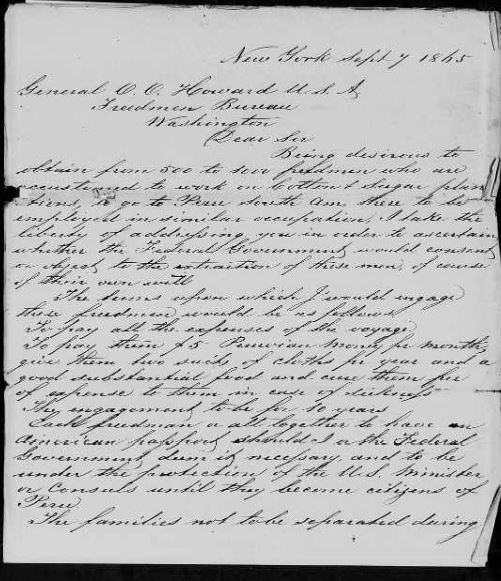 New York Sept 7 1865
General O. O. Howard U.S.A,
Freedmen Bureau
Washington
Dear Sir
Being desirous to
obtain from 500 to 1000 freedmen who are
accustomed to work on Cotton & Sugar plan
tions, to go to Peru South Am there to be
employed in similar occupation, I take the
liberty of addressing you in order to ascertain
whether the Federal Government would consent
or object to the extraction of these men, of course
of their own will
The terms upon which I would engage
these freedmen would be as follows
To pay all the expenses of the voyage
To pay them $5 Peruvian money per month,
give them two suits of cloths per year and a
good substantial food and cure them free
of expense to them in case of sickness
The engagement to be for 10 years
Each freedman or all together to have an
American passport should I or the Federal
Government deem it necessary and to be
under the protection of the U.S. Minister
or Consuls until they become citizens of
Peru
The families not to be separated during